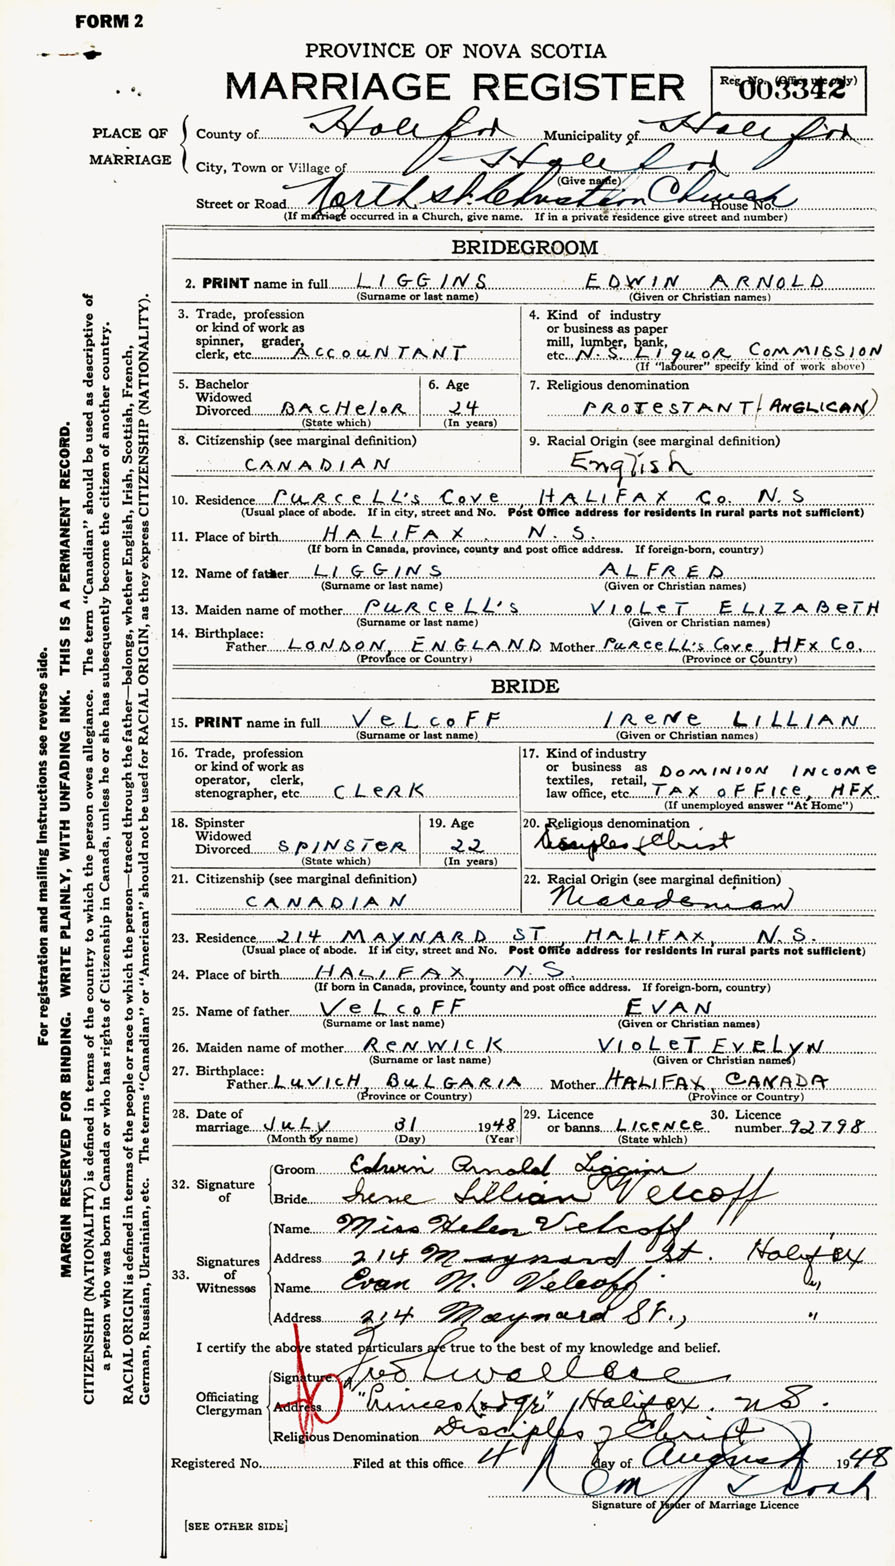 FORM 2
PROVINCE OF NOVA SCOTIA
MARRIAGE REGISTER
Reg. No. (Office use only)
003342
PLACE OF MARRIAGE
County of Halifax Municipality of Halifax
City, Town or Village of Halifax
(Give name)
Street or Road North St. Christian Church House No.
(If marriage occurred in a Church, give name. If in a private residence give street and number)
BRIDEGROOM
2. PRINT name in full LIGGINS EDWIN ARNOLD
(Surname or last name) (Given or Christian names)
3. Trade, profession
or kind of work as
spinner, grader,
clerk, etc. ACCOUNTANT
4. Kind of industry
or business as paper
mill, lumber, bank,
etc. N.S. LIQUOR COMMISSION
(If "labourer" specify kind of work above)
5. Bachelor
Widowed
Divorced BACHELOR
(State which)
6. Age
24
(In years)
7. Religious denomination
PROTESTANT (ANGLICAN)
8. Citizenship (see marginal definition)
CANADIAN
9. Racial Origin (see marginal definition)
English
10. Residence PURCELL'S COVE HALIFAX CO. N.S
(Usual place of abode. If in city, street and No. Post Office address for residents in rural parts not sufficient)
11. Place of birth HALIFAX, N.S.
(If born in Canada, province, county and post office address. If foreign-born, country)
12. Name of father LIGGINS ALFRED
(Surname or last name) (Given or Christian names)
13. Maiden name of mother PURCELL'S VIOLET ELIZABETH
(Surname or last name) (Given or Christian names)
14. Birthplace:
Father LONDON, ENGLAND Mother PURCELL'S COVE, HFX CO.
(Province or Country) (Province or Country)
BRIDE
15. PRINT name in full VELCOFF IRENE LILLIAN
(Surname or last name) (Given or Christian names)
16. Trade, profession
or kind of work as
operator, clerk,
stenographer, etc. CLERK
17. Kind of industry
or business as DOMINION INCOME
textiles, retail,
law office, etc. TAX OFFICE, HFX.
(If unemployed answer "At Home")
18. Spinster
Widowed
Divorced SPINSTER
(State which)
19. Age
22
(In years)
20. Religious denomination
Disciples of Christ
21. Citizenship (see marginal definition)
CANADIAN
22. Racial Origin (see marginal definition)
Macedonian
23. Residence 214 MAYNARD ST, HALIFAX, N.S.
(Usual place of abode. If in city, street and No. Post Office address for residents in rural parts not sufficient)
24. Place of birth HALIFAX, N.S.
(If born in Canada, province, county and post office address. If foreign-born, country)
25. Name of father VELCOFF EVAN
(Surname or last name) (Given or Christian names)
26. Maiden name of mother RENWICK VIOLET EVELYN
(Surname or last name) (Given or Christian names)
27. Birthplace:
Father LUVICH, BULGARIA Mother HALIFAX, CANADA
(Province or Country) (Province or Country)
28. Date of
marriage JULY 31 1948
(Month by name) (Day) (Year)
29. Licence
or banns LICENCE
(State which)
30. Licence
number 92798
32. Signature of
Groom Edwin Arnold Liggins
Bride Irene Lillian Velcoff
33. Signatures of Witnesses
Name Miss Helen Velcoff
Address 214 Maynard St. Halifax
Name Evan N. Velcoff "
Address 214 Maynard St., "
I certify the above stated particulars are true to the best of my knowledge and belief.
Officiating Clergyman
Signature Fred C Wallace
Address "Princes Lodge" Halifax. N.S.
Religious Denomination Disciples of Christ
Registered No. Filed at this office 4 day of August 1948
Signature of Issuer of Marriage Licence
[SEE OTHER SIDE]
For registration and mailing instructions see reverse side.
MARGIN RESERVED FOR BINDING. WRITE PLAINLY, WITH UNFADING INK. THIS IS A PERMANENT RECORD.
CITIZENSHIP (NATIONALITY) is defined in terms of the country to which the person owes allegiance. The term "Canadian" should be used as descriptive of
a person who was born in Canada or who has rights of Citizenship in Canada, unless he or she has subsequently become the citizen of another country.
RACIAL ORIGIN is defined in terms of the people or race to which the person—traced through the father—belongs, whether English, Irish, Scottish, French,
German, Russian, Ukrainian, etc. The terms "Canadian" or "American" should not be used for RACIAL ORIGIN, as they express CITIZENSHIP (NATIONALITY).